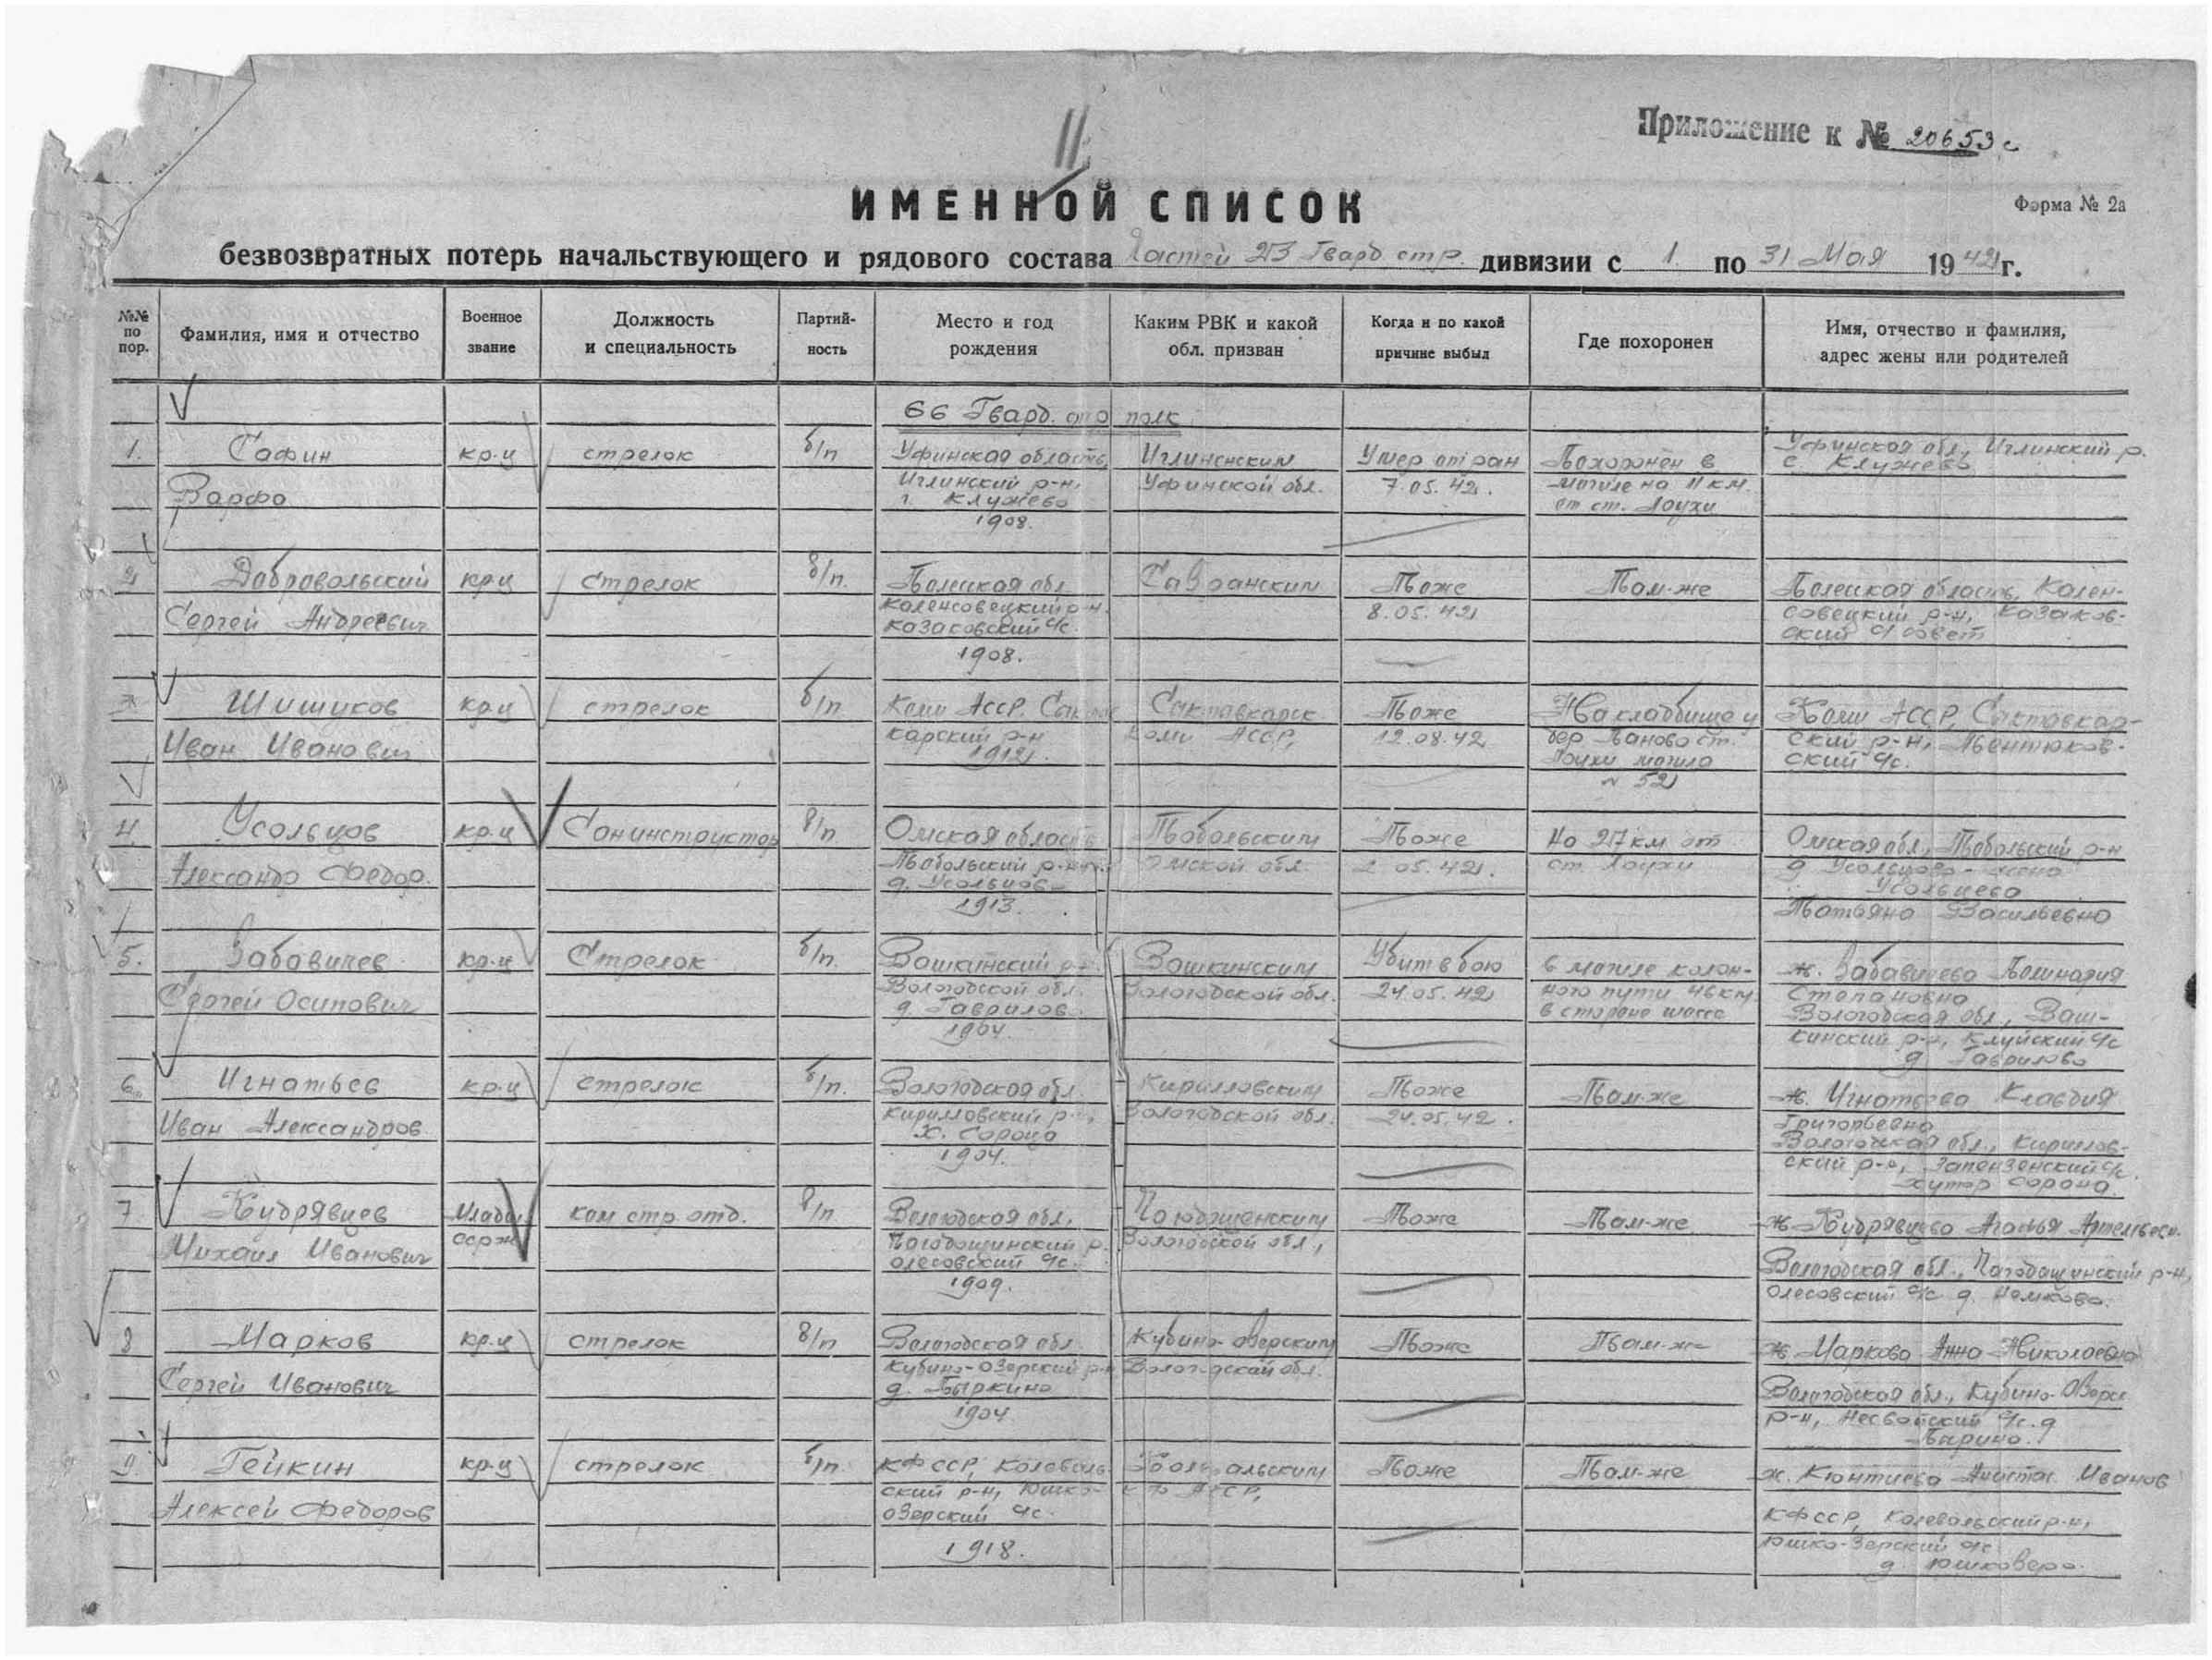 11
Приложение к № 20653с
ИМЕННОЙ СПИСОК
Форма № 2а
безвозвратных потерь начальствующего и рядового состава Частей 23 Гвард. стр. дивизии с 1. по 31 Мая 1942 г.
№№ по пор.
Фамилия, имя и отчество
Военное звание
Должность и специальность
Партий-ность
Место и год рождения
Каким РВК и какой обл. призван
Когда и по какой причине выбыл
Где похоронен
Имя, отчество и фамилия, адрес жены или родителей
66 Гвард. стр полк
1. Сафин кр-ц стрелок б/п Уфинская область, Иглиненским Умер от ран Похоронен в Уфинская обл, Иглинский р.
с Клужево
Варфа Иглинский р-н, Уфинской обл. 7.05.42. могиле на 11 км.
г. Клужево от ст. Лоухи
1908.
2 Добровольский кр-ц стрелок б/п. обл Савранским Тоже Там-же область, Кален-
Сергей Андреевич р-н. 8.05.42 совецкий р-н, Казаков-
Казаковский с/с. ский с/совет
1908.
3 Шишуков кр-ц стрелок б/п. Коми АССР. Сык Сактавкарск Тоже На кладбище у Коми АССР, Сактавкар-
Иван Иванович карский р-н Коми АССР, 12.08.42 дер ст. ский р-н,
1912. Лоухи могила ский с/с.
№ 52
4. Усольцов кр-ц Санинструктор б/п Омская область Тобольским Тоже На 27 км от Омская обл., Тобольский р-н
Александр Федор. Тобольский р-н Омской обл. 2 05.42. ст. Лоухи д Усольцово - жена
д. Усольцов Усольцева
1913. Татьяна Васильевна
5. Забавичев кр-ц Стрелок б/п. Вашкинский р-н Вашкинским Убит в бою в могиле колон- ж. Забавичева
Сергей Осипович Вологодской обл. Вологодской обл. 24.05.42 ного пути 46 км Степановна
д. Гаврилов в стороне шоссе Вологодская обл., Ваш-
1904. кинский р-н, с/с
д. Гаврилово
6. Игнатьев кр-ц стрелок б/п. Вологодская обл. Кирилловским Тоже Там-же ж. Игнатьева Клавдия
Иван Александров. Кирилловский р-н, Вологодской обл. 24.05.42. Григорьевна
х. Сорона Вологодская обл., Кириллов-
1904. ский р-н, с/с.
хутор Сорона.
7 Кудрявцев Младш. серж ком стр. отд. б/п Вологодская обл. Тоже Там-же ж Кудрявцева Агафья
Михаил Иванович р. Вологодской обл.,
Олесовский с/с.
1909. Вологодская обл., р-н,
Олесовский с/с д.
8 Марков кр-ц стрелок б/п Вологодская обл. Кубино-озерским Тоже Там-же ж Маркова Анна Николаевна
Сергей Иванович Кубино-Озерский р-н Вологодской обл.
д. Быркино Вологодская обл., Кубино-Озерс
1904 р-н, с/с. д
9 Гейкин кр-ц стрелок б/п. КФССР, Калеваль- Тоже Там-же ж. Иванов
Алексей Федоров ский р-н, Юшко-
озерский с/с. КФССР, Калевальский р-н,
1918. Юшко-Зерский с/с
д.